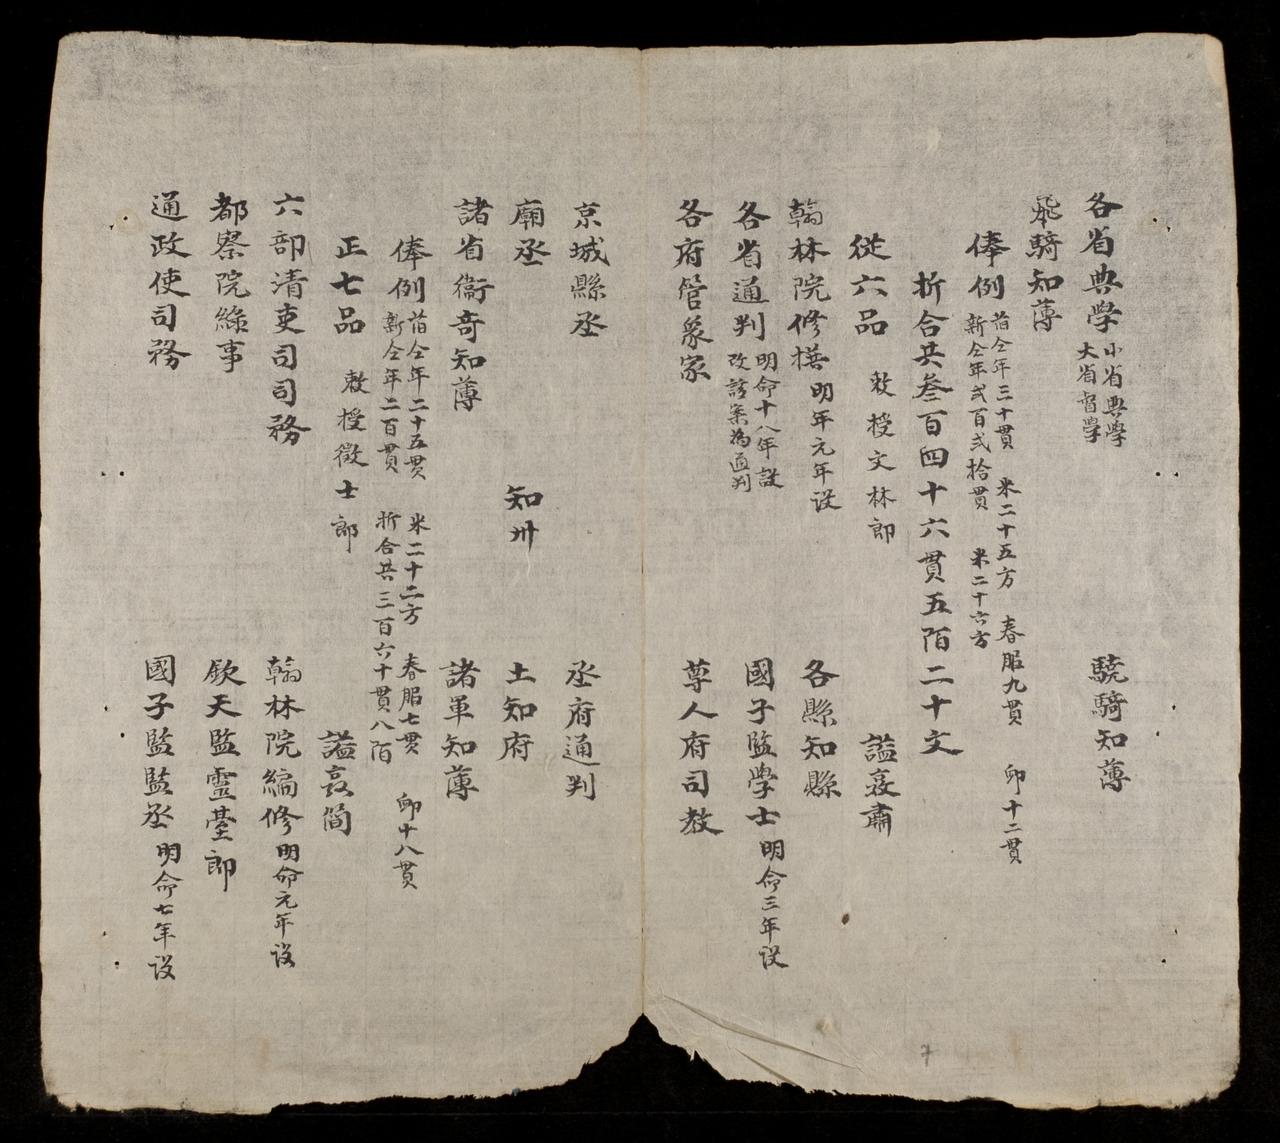 各省典學 小省典學 大省督學 驍騎知薄
飛騎知薄
俸例 旧仝年三十貫 米二十五方 春服九貫 卹十二貫
新仝年弍百弍拾貫 米二十六方
折合共叄百四十六貫五陌二十文
從六品 敕授文林郎 謚衰肅
翰林院修撰 明年元年设 各縣知縣
各省通判 明命十八年設 改該案為通判 國子監學士 明命三年设
各府管象家 尊人府司教
京城縣丞 丞府通判
廟丞 知卅 土知府
諸省衞竒知薄 諸軍知薄
俸例 旧仝年二十五贯 米二十二方 春服七贯 卹十八贯
新仝年二百贯 折合共三百六十貫八陌
正七品 敕授徵士郎 謚哀簡
六部清吏司司務 翰林院編修 明命元年设
都察院緣事 欽天監靈臺郎
通政使司務 國子監監丞 明命七年设